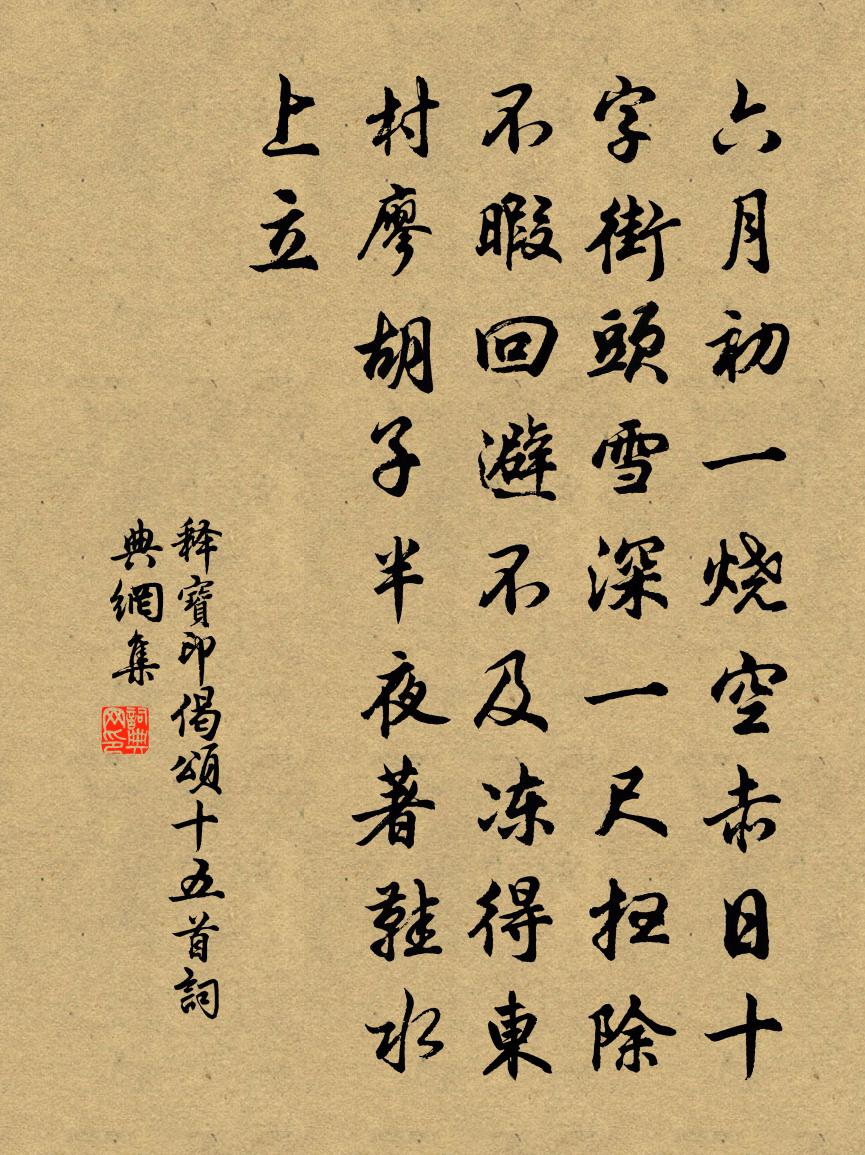 六月初一烧空赤日十
字街頭雪深一尺扫除
不暇回避不及冻得東
村廖胡子半夜著鞋水
上立
释寶印偈頌十五首詞
典網集
詞典
网印